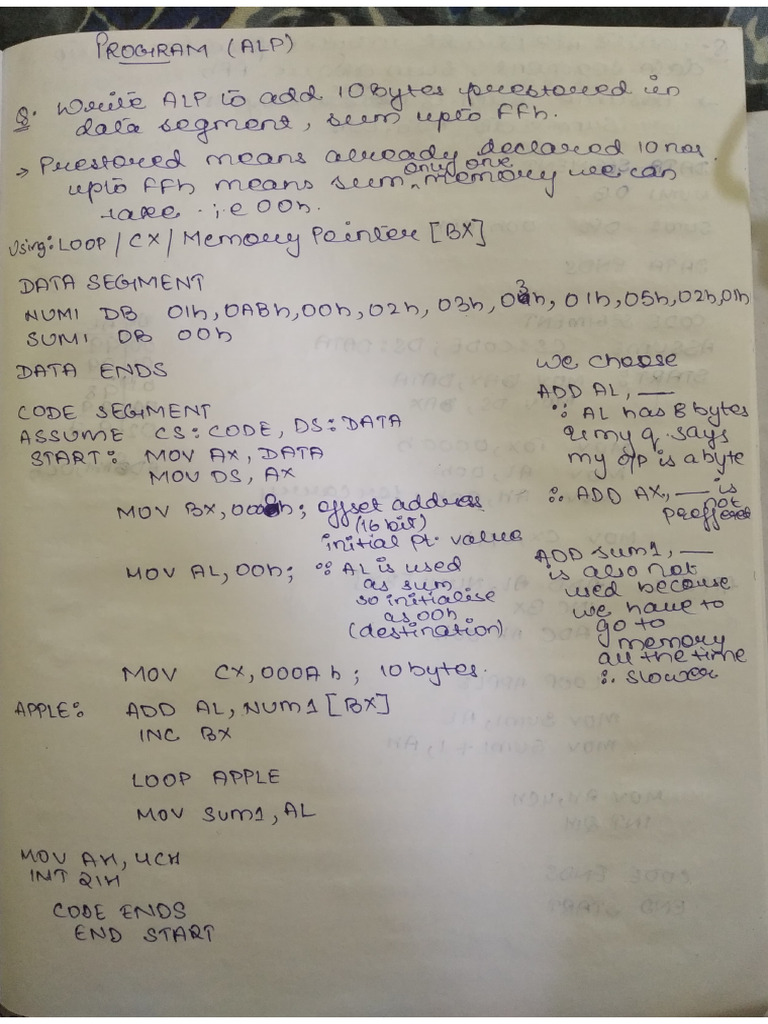 PROGRAM (ALP)
Q. Write ALP to add 10 bytes prestored in
data segment, sum upto FFh.
→ Prestored means already declared 10 nos.
upto FFh means sum only one memory we can
take . i.e 00h.
Using: LOOP / CX / Memory Pointer [BX]
DATA SEGMENT
NUM1 DB 01h, 0ABh, 00h, 02h, 03h, 03h, 01h, 05h, 02h, 01h
SUM1 DB 00h
DATA ENDS
CODE SEGMENT
ASSUME CS: CODE, DS: DATA
START: MOV AX, DATA
MOV DS, AX
MOV BX, 0000h; offset address
(16 bit)
initial pt. value
MOV AL, 00h; ∵ AL is used
as sum
so initialise
as 00h
(destination)
MOV CX, 000Ah; 10 bytes.
APPLE: ADD AL, NUM1 [BX]
INC BX
LOOP APPLE
MOV SUM1, AL
MOV AH, 4CH
INT 21H
CODE ENDS
END START
We choose
ADD AL, __
∵ AL has 8 bytes
& my q. says
my o/p is a byte
∴ ADD AX, __ is
not
preffered
ADD sum1, __
is also not
used because
we have to
go to
memory
all the time
∴ slower